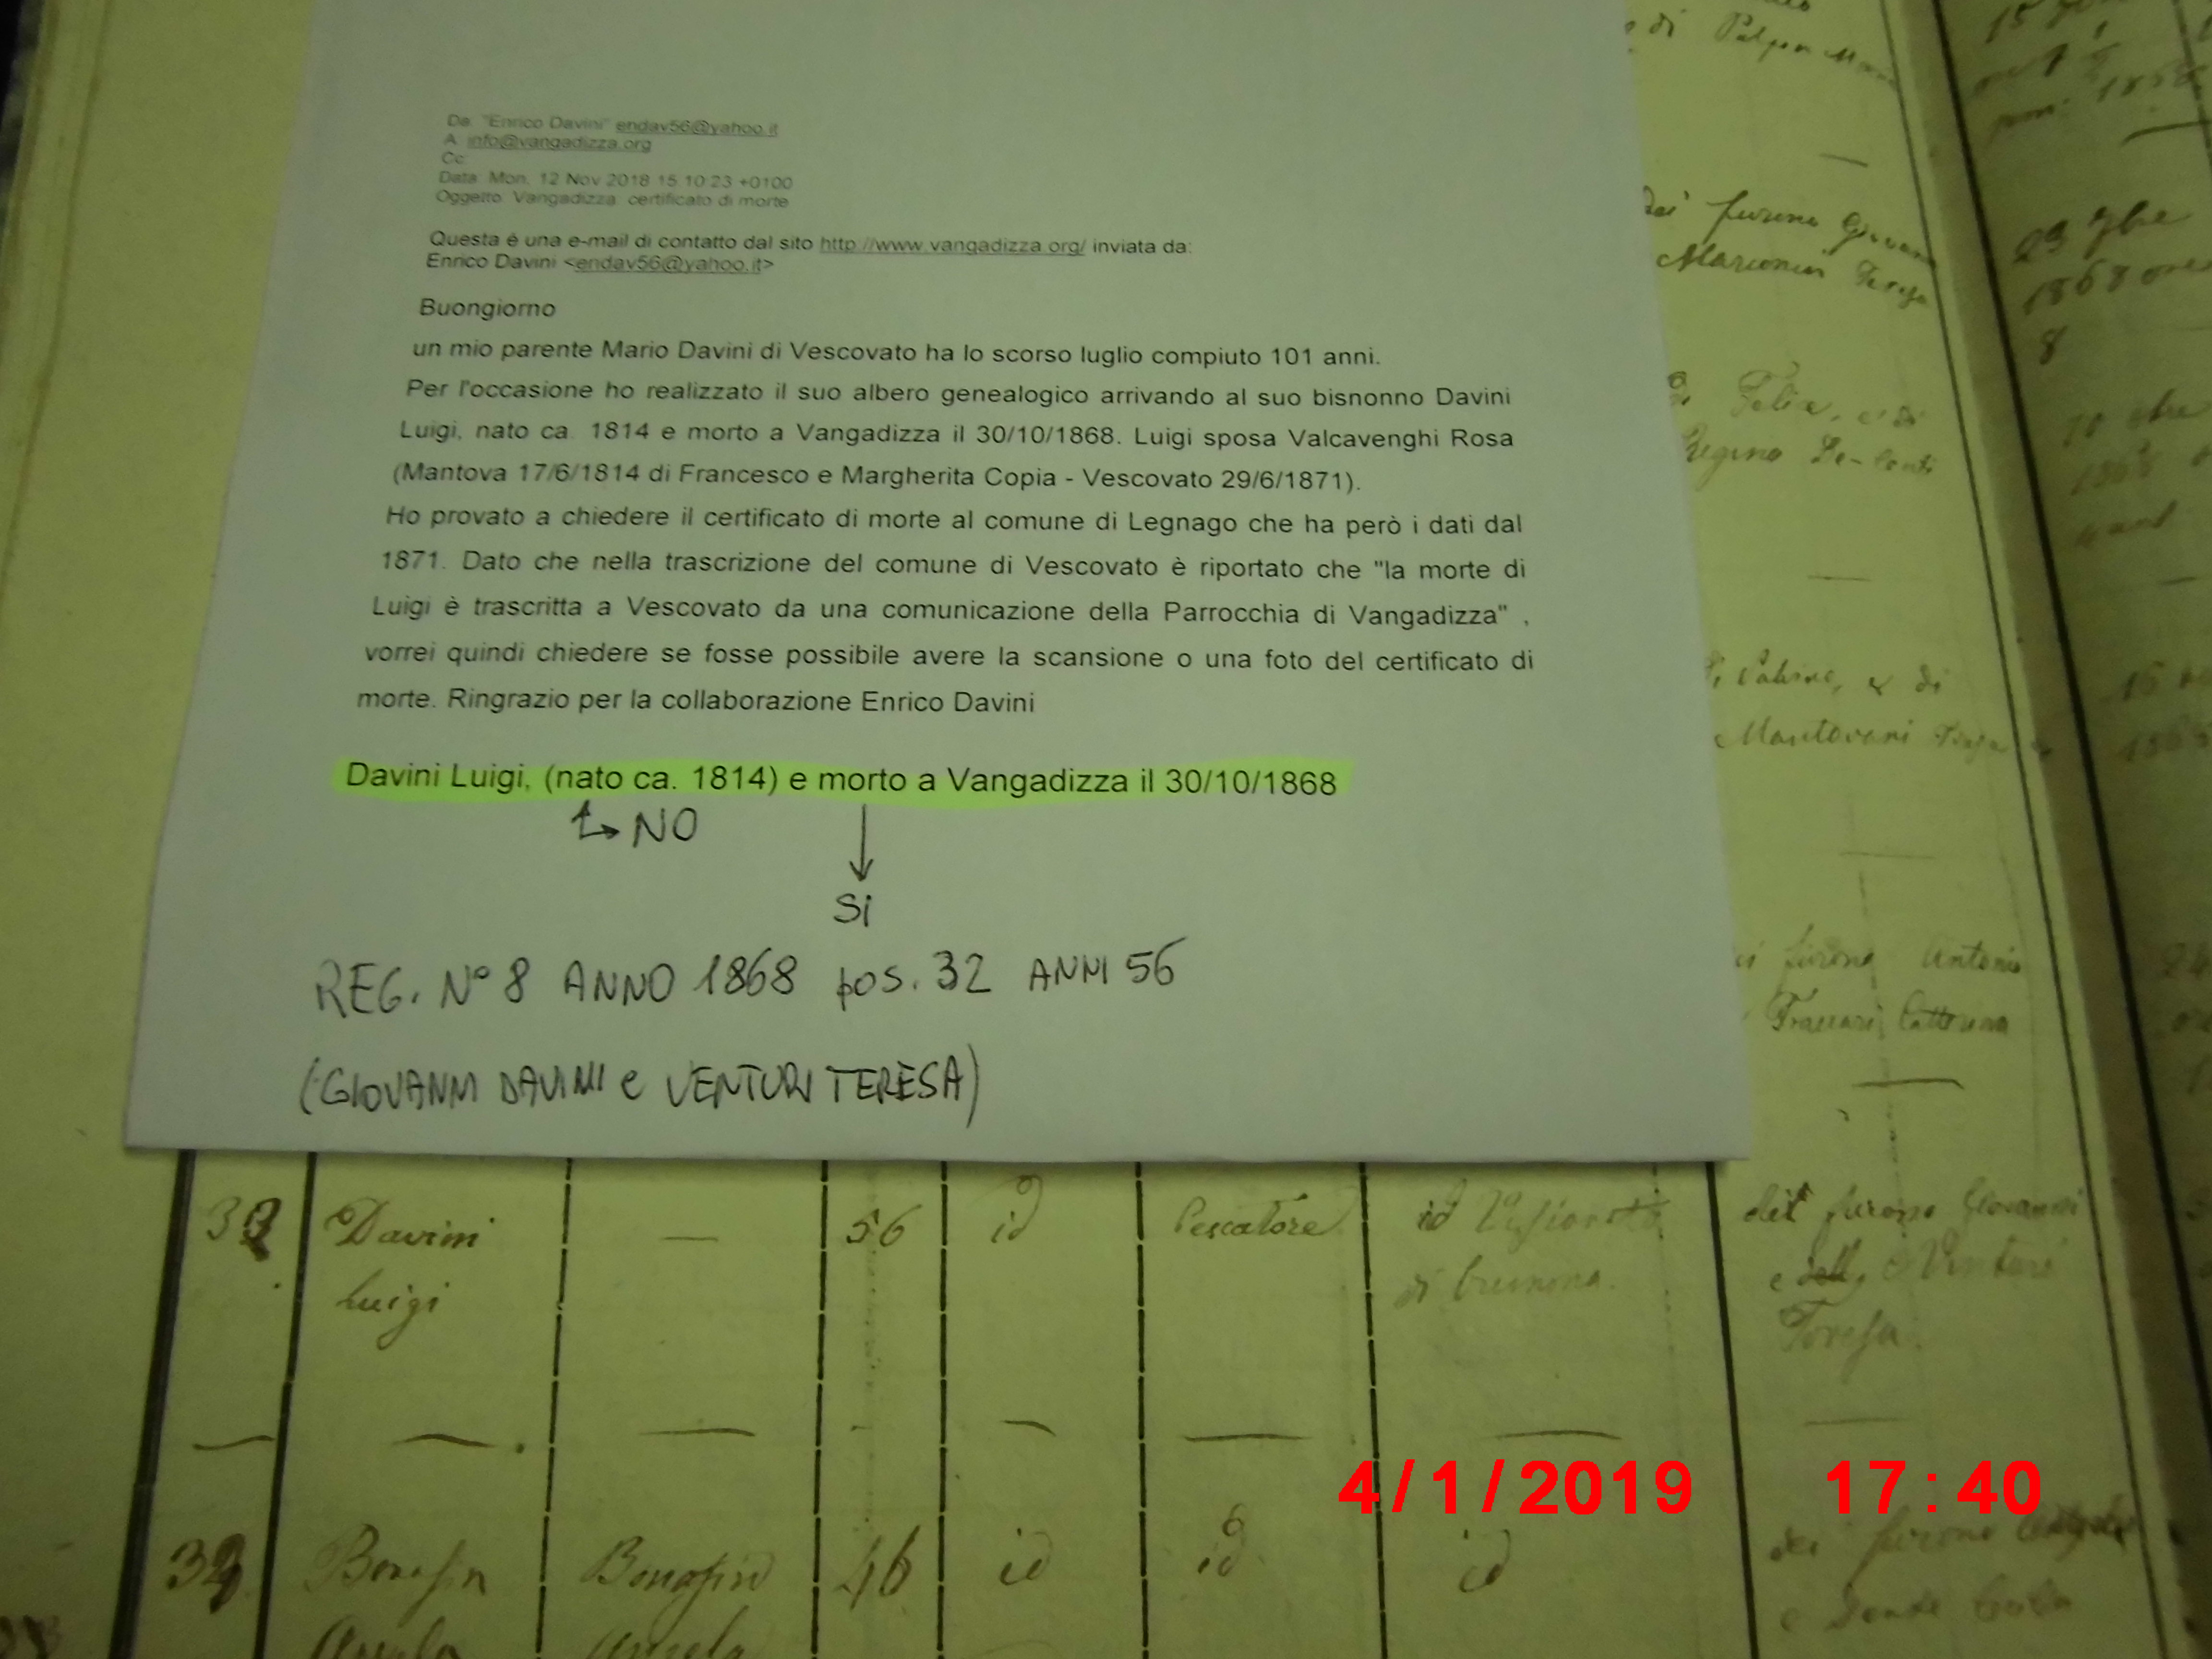 Da: "Enrico Davini" endav56@yahoo.it
A: info@vangadizza.org
Cc:
Data: Mon, 12 Nov 2018 15:10:23 +0100
Oggetto: Vangadizza: certificato di morte
Questa è una e-mail di contatto dal sito http://www.vangadizza.org/ inviata da:
Enrico Davini <endav56@yahoo.it>
Buongiorno
un mio parente Mario Davini di Vescovato ha lo scorso luglio compiuto 101 anni.
Per l'occasione ho realizzato il suo albero genealogico arrivando al suo bisnonno Davini
Luigi, nato ca. 1814 e morto a Vangadizza il 30/10/1868. Luigi sposa Valcavenghi Rosa
(Mantova 17/6/1814 di Francesco e Margherita Copia - Vescovato 29/6/1871).
Ho provato a chiedere il certificato di morte al comune di Legnago che ha però i dati dal
1871. Dato che nella trascrizione del comune di Vescovato è riportato che "la morte di
Luigi è trascritta a Vescovato da una comunicazione della Parrocchia di Vangadizza" ,
vorrei quindi chiedere se fosse possibile avere la scansione o una foto del certificato di
morte. Ringrazio per la collaborazione Enrico Davini
Davini Luigi, (nato ca. 1814) e morto a Vangadizza il 30/10/1868
NO
Si
REG. N° 8 ANNO 1868 pos. 32 ANNI 56
(GIOVANNI DAVINI e VENTURI TERESA)
di
dei furono
Marconcin Teresa
23
1868
8
Felice, e di
Regina
e di
Mantovani
furono Antonio
32 Davini — 56 id Pescatore id furono Giovanni
Luigi di Cremona. e Venturi
Teresa.
4/1/2019 17:40
33 46 id id id dei furono
e